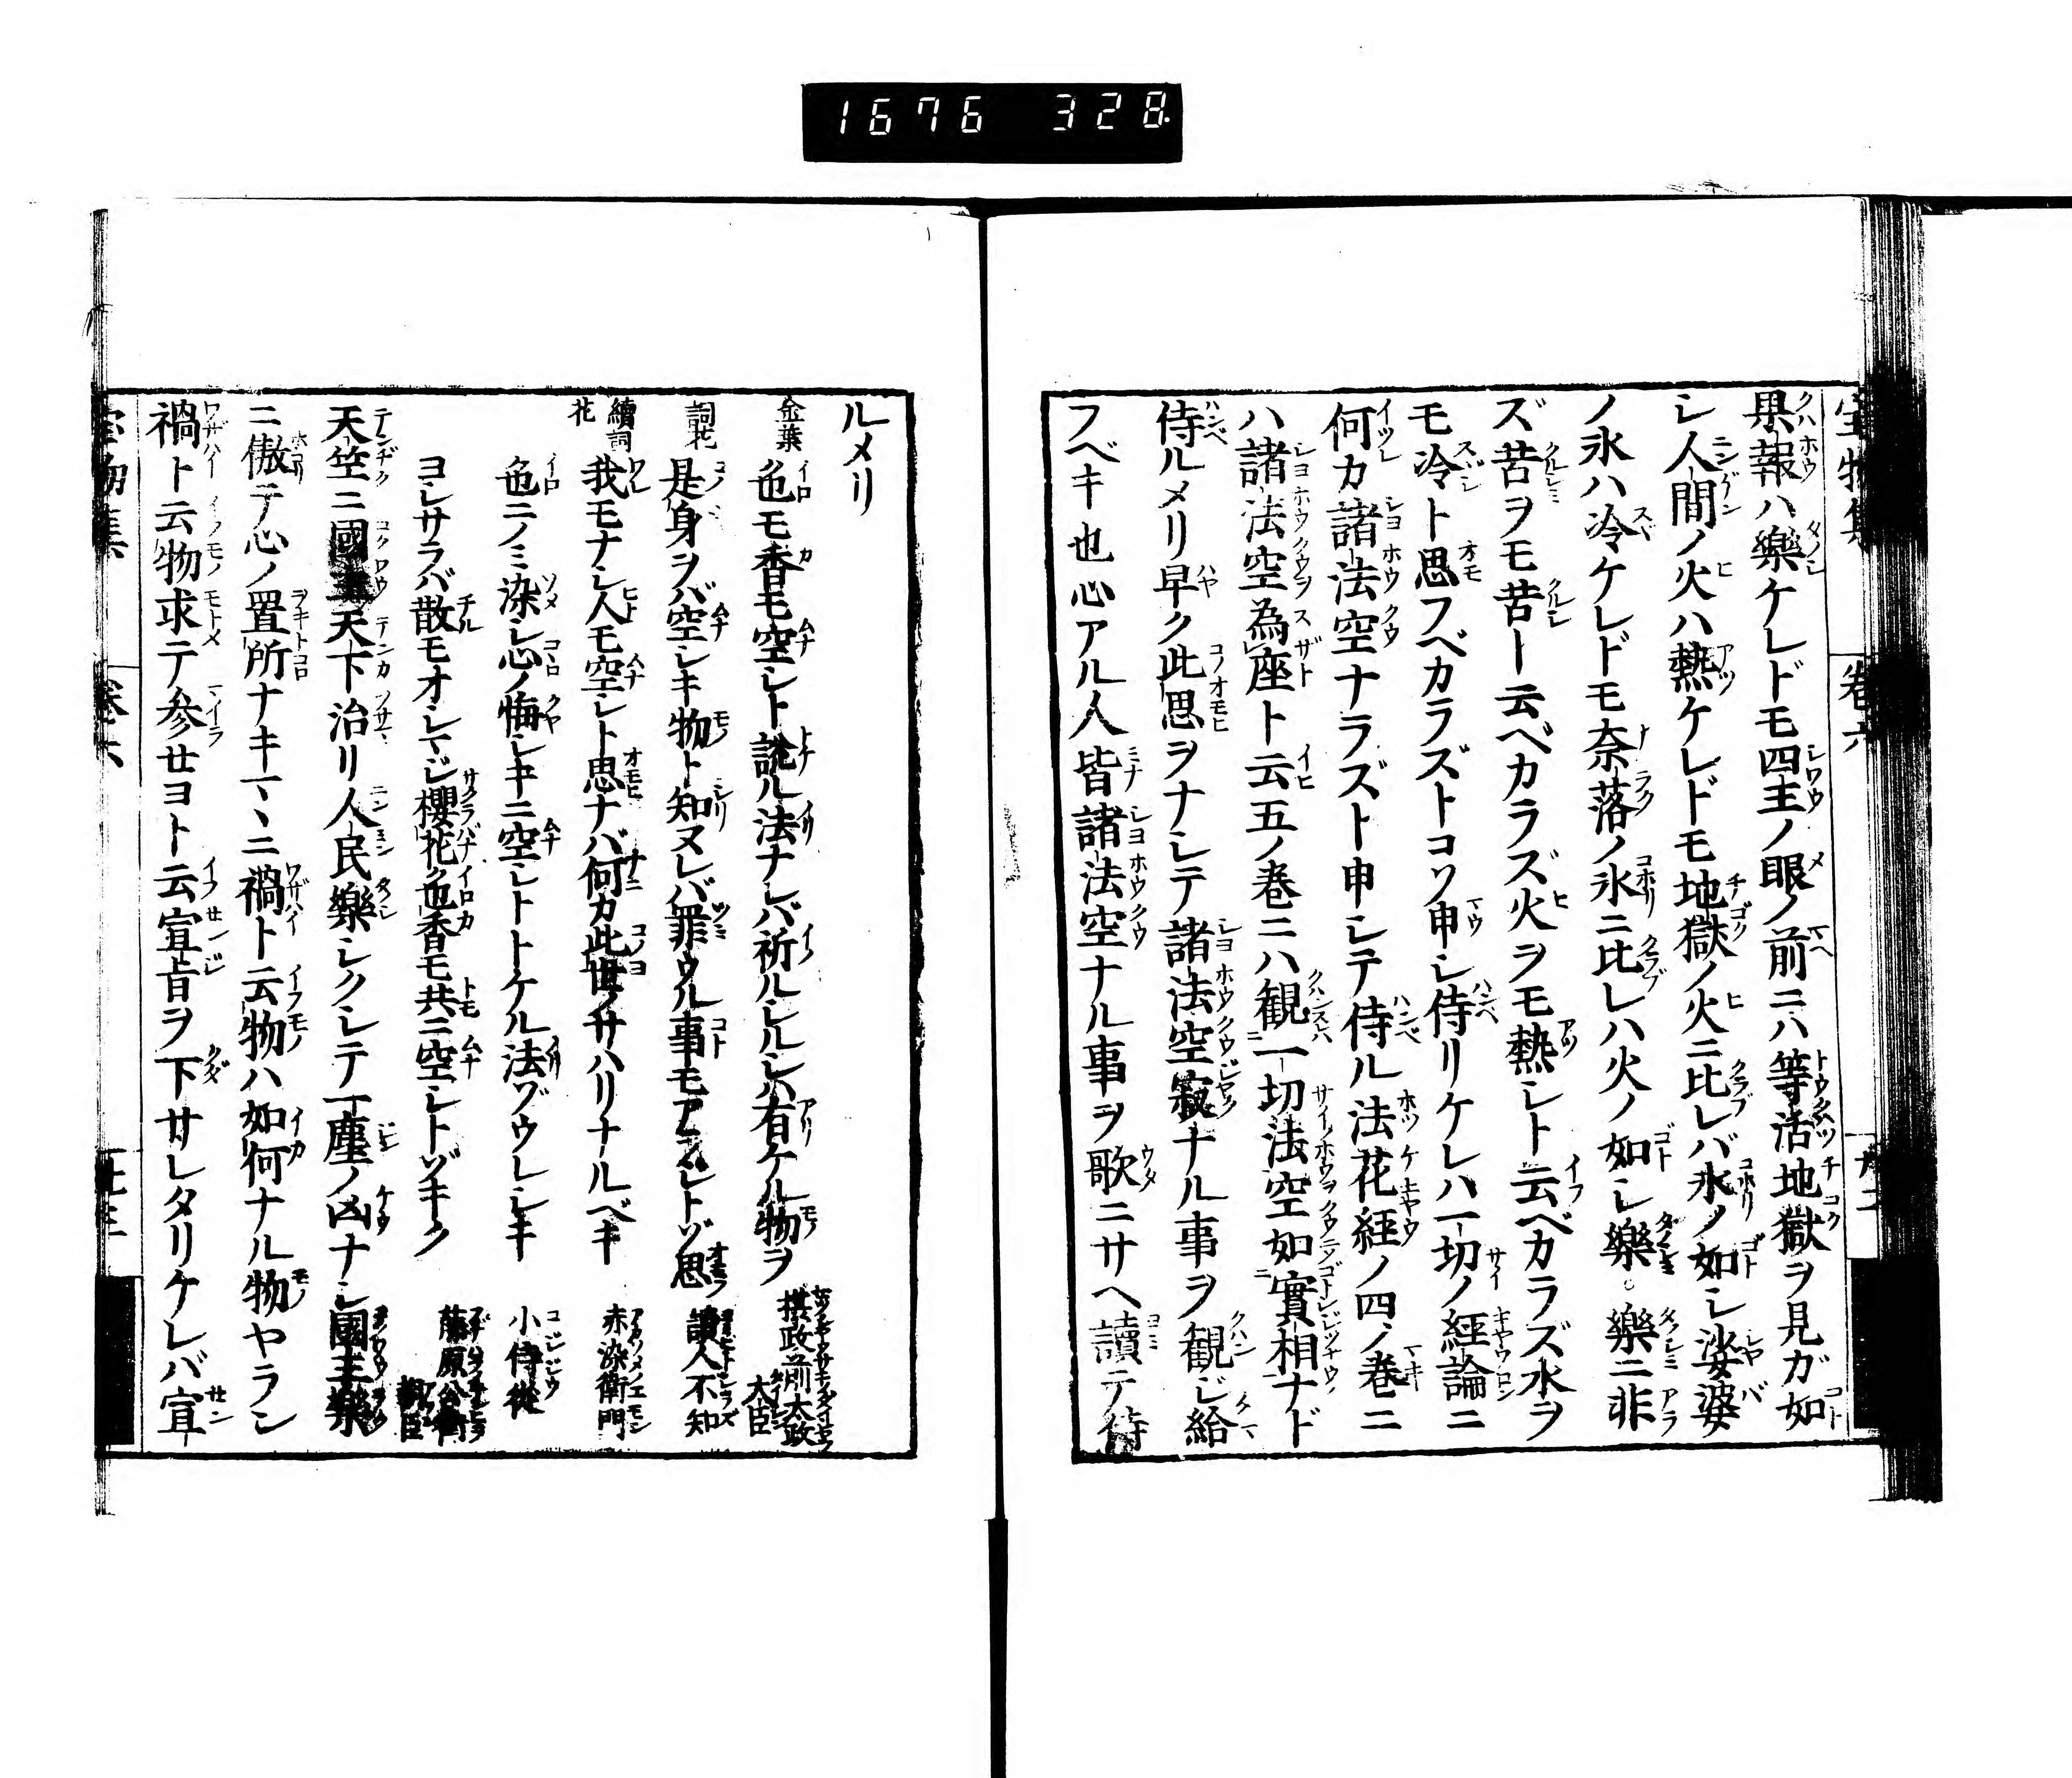 1676 328
果報ハ樂ケレドモ四王ノ眼ノ前ニハ等活地獄ヲ見ガ如
シ人間ノ火ハ熱ケレドモ地獄ノ火ニ比レバ氷ノ如シ娑婆
ノ氷ハ冷ケレドモ奈落ノ氷ニ比レハ火ノ如シ樂。樂ニ非
ズ苦ヲモ苦ト云ベカラズ火ヲモ熱シト云ベカラズ水ヲ
モ冷ト思フベカラズトコソ申シ侍リケレハ一切ノ經論ニ
何カ諸法空ナラズト申シテ侍ル法花経ノ四ノ巻ニ
ハ諸法空為座ト云五ノ巻ニハ観一切法空如實相ナド
侍ルメリ早ク此思ヲナシテ諸法空寂ナル事ヲ観ジ給
フベキ也心アル人皆諸法空ナル事ヲ歌ニサヘ讀テ侍
ルメリ
金葉 色モ香モ空シト説ル法ナレバ祈ルシルシハ有ケル物ヲ 摂政前太政大臣
詞花 是身ヲバ空シキ物ト知ヌレバ罪ウル事モアラジトゾ思 讀人不知
續詞花 我モナシ人モ空シト思ナバ何カ此世ノサハリナルベキ 赤染衛門
色ニノミ染シ心ノ悔シキニ空シトトケル法ゾウレシキ 小侍従
ヨシサラバ散モオシマジ櫻花色香モ共ニ空シトゾキク 藤原公衡朝臣
天竺ニ國王天下治リ人民樂シクシテ一塵ノ凶ナシ國王樂
ニ傲テ心ノ置所ナキマヽニ禍ト云物ハ如何ナル物ヤラン
禍ト云物求テ参セヨト云宣旨ヲ下サレタリケレバ宣